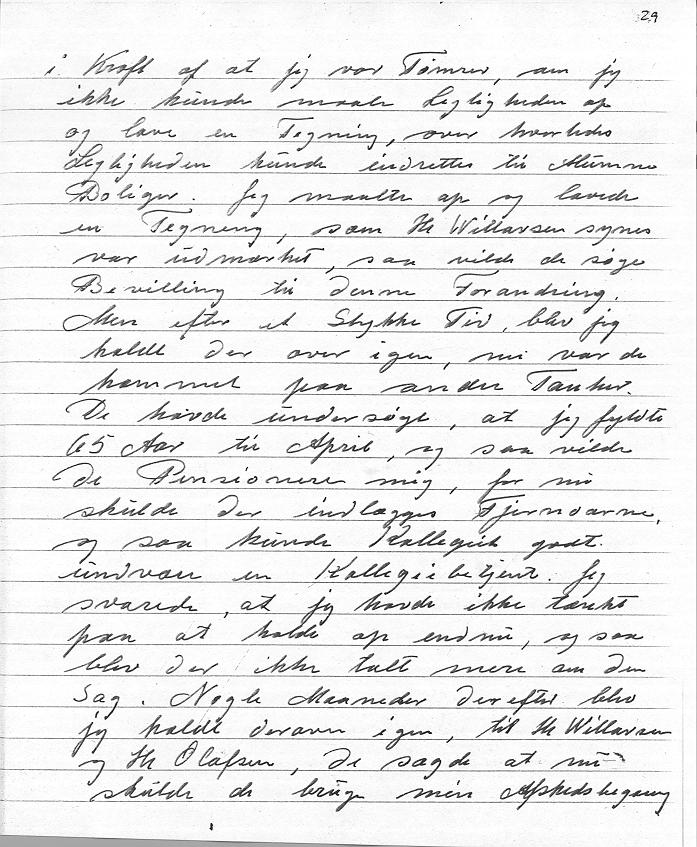 29
i Kraft af at jeg var Tømrer, om jeg
ikke kunde maale Lejligheden op
og lave en Tegning, over hvorledes
Lejligheden kunde indrettes til Alumne
Boliger. Jeg maalte op og lavede
en Tegning, som Hr Willarsen synes
var udmærket, saa vilde de søge
Bevilling til denne Forandring.
Men efter et Stykke Tid, blev jeg
kaldt der over igen, nu var de
kommet paa andre Tanker.
De havde undersøgt, at jeg fyldte
65 Aar til April, og saa vilde
de Pensionere mig, for nu
skulde der indlægges Fjernvarme,
og saa kunde Kollegiet godt
undvære en Kollegiebetjent. Jeg
svarede, at jeg havde ikke tænkt
paa at holde op endnu, og saa
blev der ikke talt mere om den
Sag. Nogle Maaneder derefter blev
jeg kaldt derover igen, til Hr Willarsen
og Hr Olafsen, de sagde at nu
skulde de bruge min Afskedsbegæring